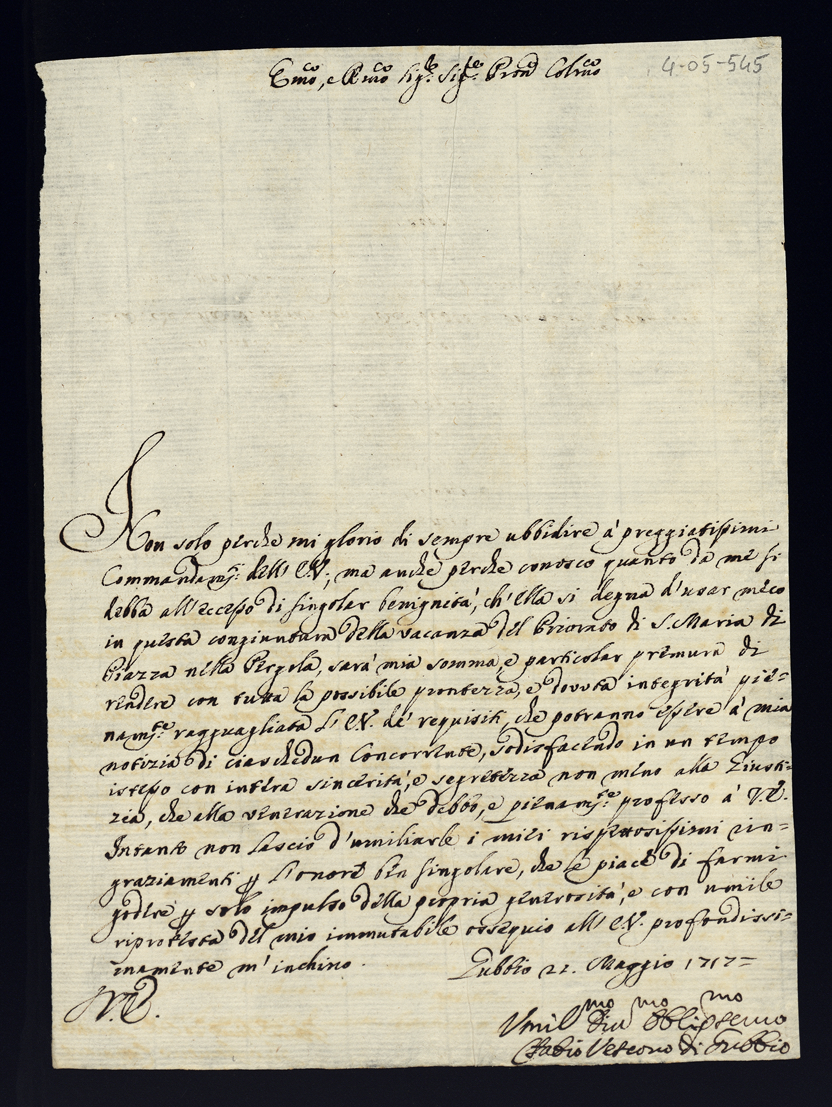 Em.o, e R.mo Sig.r Sig.re Pron Colmo
4-05-545
Non solo perche mi glorio di sempre ubbidire à preggiatissimi
Commandam.ti dell'E.V., ma anche perche conosco quanto da me si
debba all'eccesso di singolar benignità, ch'ella si degna d'usar meco
in questa congiuntura della vacanza del Priorato di S. Maria di
Piazza nella Pergola, sarà mia somma, e particolar premura di
rendere con tutta la possibile prontezza, e dovuta integrità pie=
nam.te ragguagliata l'E.V. de' requisiti, che potranno essere à mia
notizia di ciaschedun Concorrente, sodisfacendo in un tempo
istesso con intera sincerità, e segretezza non meno alla Giusti=
zia, che alla venerazione che debbo, e pienam.te professo à V.E.
Intanto non lascio d'umiliarle i miei rispettosissimi rin=
graziamenti p l'onore ben singolare, che le piace di farmi
godere p solo impulso della propria generosità, e con umile
riprotesta del mio immutabile ossequio all'E.V. profondissi=
mamente m'inchino.
Gubbio 21. Maggio 1717=
Umil.mo Div.mo Obblig.mo Servo
Fabio Vescovo di Gubbio